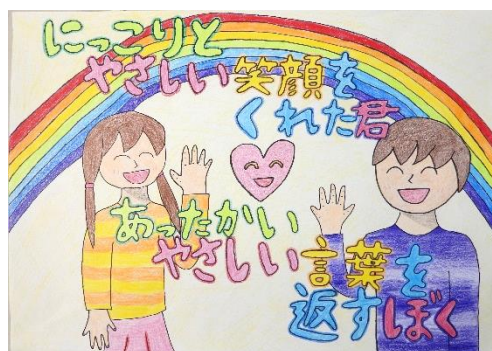 にっこりと
やさしい笑顔を
くれた君
あったかい
やさしい言葉を
返すぼく